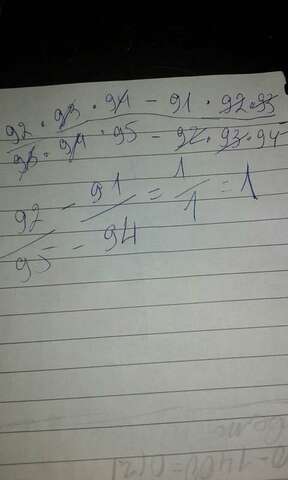 92 · 93 · 94 - 91 · 92 · 93
93 · 94 · 95 - 92 · 93 · 94
92 - 91 = 1 = 1
95 - 94 1